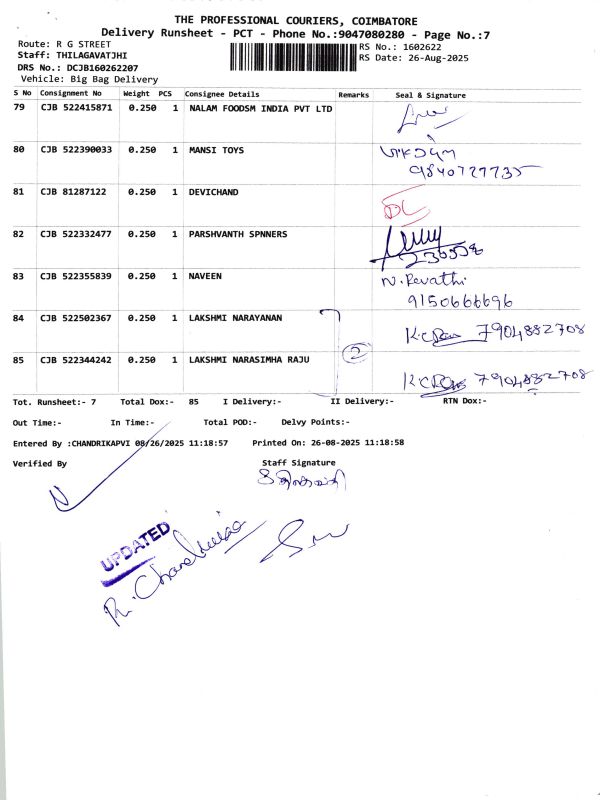 THE PROFESSIONAL COURIERS, COIMBATORE
Delivery Runsheet - PCT - Phone No.:9047080280 - Page No.:7
Route: R G STREET
RS No.: 1602622
Staff: THILAGAVATJHI
RS Date: 26-Aug-2025
DRS No.: DCJB160262207
Vehicle: Big Bag Delivery
S No Consignment No Weight PCS Consignee Details Remarks Seal & Signature
79 CJB 522415871 0.250 1 NALAM FOODSM INDIA PVT LTD
80 CJB 522390033 0.250 1 MANSI TOYS
9840727735
81 CJB 81287122 0.250 1 DEVICHAND
DC
82 CJB 522332477 0.250 1 PARSHVANTH SPNNERS
236558
83 CJB 522355839 0.250 1 NAVEEN N. Revathi
9150666696
84 CJB 522502367 0.250 1 LAKSHMI NARAYANAN
7904882708
2
85 CJB 522344242 0.250 1 LAKSHMI NARASIMHA RAJU
7904882708
Tot. Runsheet:- 7 Total Dox:- 85 I Delivery:- II Delivery:- RTN Dox:-
Out Time:- In Time:- Total POD:- Delvy Points:-
Entered By :CHANDRIKAPVI 08/26/2025 11:18:57 Printed On: 26-08-2025 11:18:58
Verified By Staff Signature
UPDATED